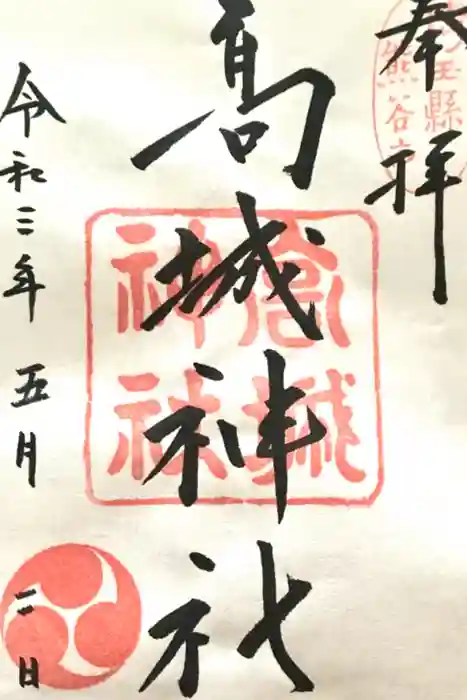 奉拝
埼玉縣熊谷市
高城神社
高城神社
令和三年五月二日